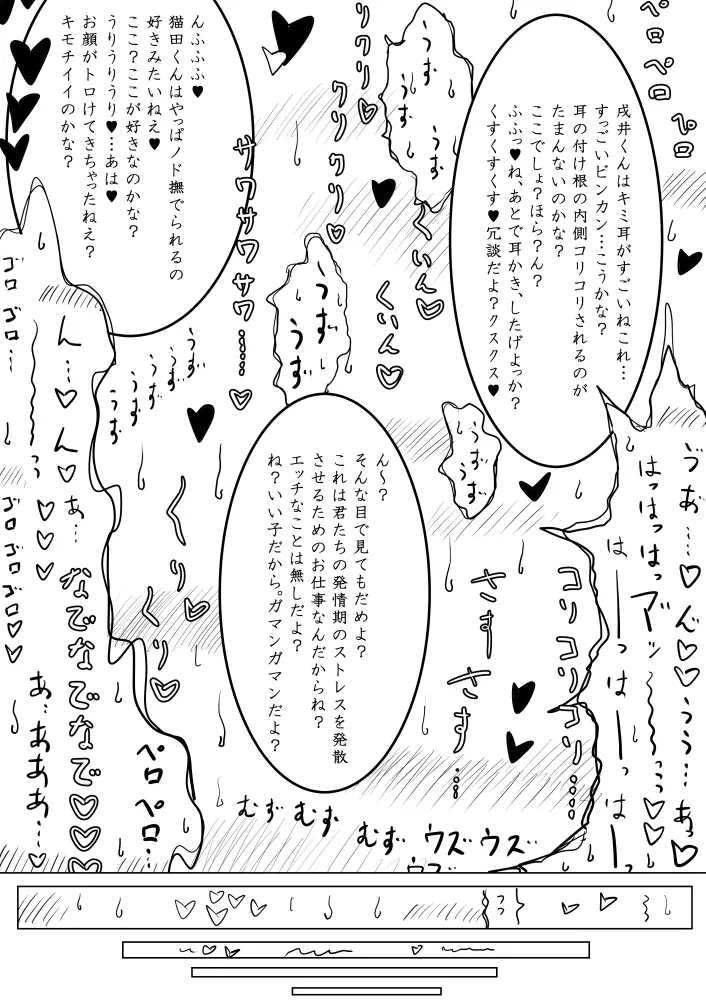 戌井くんはキミ耳がすごいねこれ…
すっごいビンカン…こうかな?
耳の付け根の内側コリコリされるのが
たまんないのかな?
ここでしょ?ほら?ん?
ふふっ♥ね、あとで耳かき、したげよっか?
くすくすくす♥冗談だよ?クスクス♥
んふふふ♥
猫田くんはやっぱノド撫でられるの
好きみたいねえ♥
ここ?ここが好きなのかな?
うりうりうり♥…あは♥
お顔がトロけてきちゃったねえ?
キモチイイのかな?
ん～?
そんな目で見てもだめよ?
これは君たちの発情期のストレスを発散
させるためのお仕事なんだからね?
エッチなことは無しだよ?
ね?いい子だから。ガマンガマンだよ?
ペロ
ペロペロ
ペロ
うず
うず
うず
くいん♡
くいん♡
クリクリ♡
クリクリ♡
サワサワサワサワ……♡
うず
うず
うず
うず
うず
うず
うず
うず
うず
はっはっはっ
はーーっはーーっはーー
コリコリコリ……
さす
さす
さす…
くり
くり♡
ゴロゴロ…
ん…♡ん♡
あ…
ゴロゴロゴロゴロ♡♡
なでなでなでなで♡♡♡
あ…あああ…♡
ペロ
ペロ…
むず
むず
むず
ウズ
ウズ
ウズ
うぅ…あっ♡